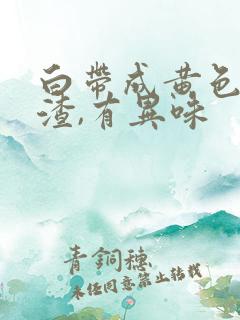 白帶成黃色
渣,有異味
青銅穗
未经同意禁止转载